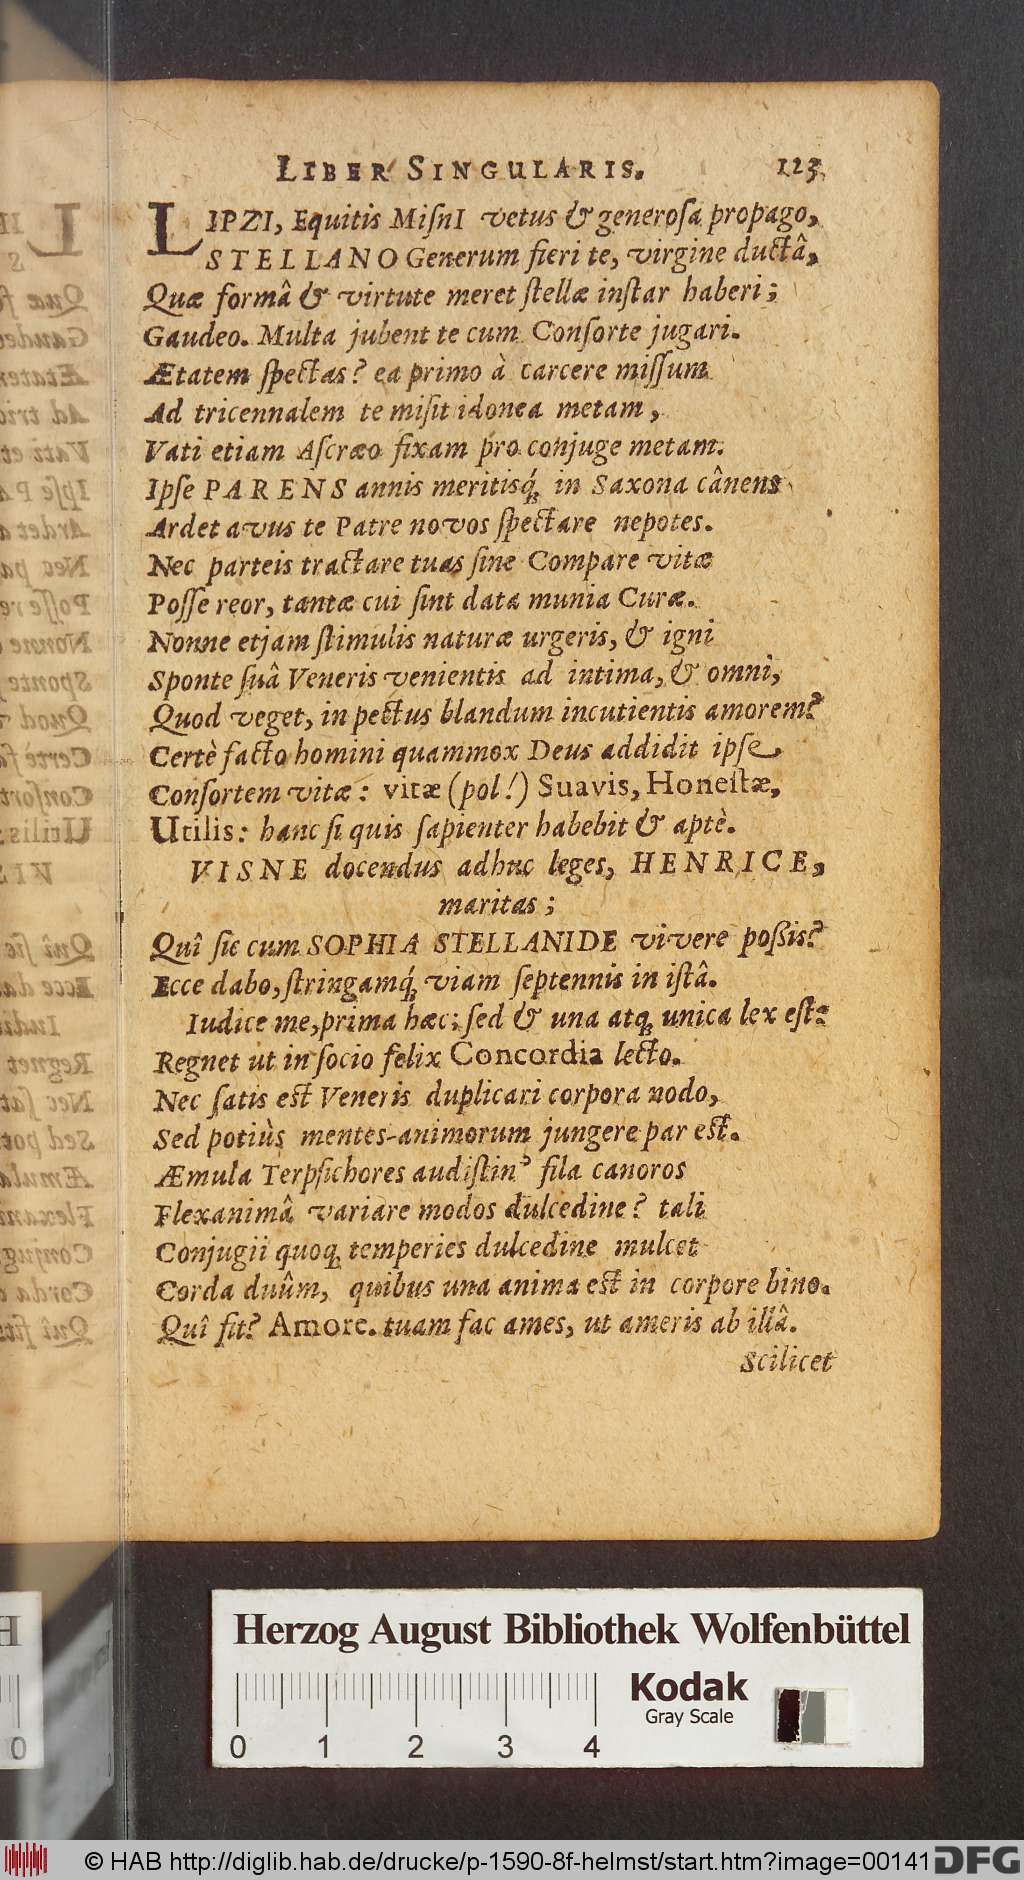 LIBER SINGULARIS. 123
LIPZI, Equitis MiſnI vetus & generoſa propago,
STELLANO Generum fieri te, virgine ductâ,
Quæ formâ & virtute meret ſtellæ inſtar haberi;
Gaudeo. Multa jubent te cum Conſorte jugari.
Ætatem ſpectas? ea primo à carcere miſſum
Ad tricennalem te miſit idonea metam,
Vati etiam Aſcræo fixam pro conjuge metam.
Ipſe PARENS annis meritisq́; in Saxona cânens
Ardet avus te Patre novos ſpectare nepotes.
Nec parteis tractare tuas ſine Compare vitæ
Poſſe reor, tantæ cui ſint data munia Curæ.
Nonne etjam ſtimulis naturæ urgeris, & igni
Sponte ſuâ Veneris venientis ad intima, & omni,
Quod veget, in pectus blandum incutientis amorem?
Certè facto homini quammox Deus addidit ipſe
Conſortem vitæ: vitæ (pol!) Suavis, Honeſtæ,
Utilis: hanc ſi quis ſapienter habebit & aptè.
VISNE docendus adhuc leges, HENRICE,
maritas;
Quî ſic cum SOPHIA STELLANIDE vivere poßis?
Ecce dabo, ſtringamq́; viam ſeptennis in iſtâ.
Iudice me, prima hæc; ſed & una atq; unica lex eſt:
Regnet ut in ſocio felix Concordia lecto.
Nec ſatis eſt Veneris duplicari corpora nodo,
Sed potiùs mentes-animorum jungere par eſt.
Æmula Terpſichores audiſtin' fila canoros
Flexanimâ variare modos dulcedine? tali
Conjugii quoq; temperies dulcedine mulcet
Corda duûm, quibus una anima eſt in corpore bino.
Quî fit? Amore. tuam fac ames, ut ameris ab illâ.
Scilicet
Herzog August Bibliothek Wolfenbüttel
Kodak
Gray Scale
0 1 2 3 4
© HAB http://diglib.hab.de/drucke/p-1590-8f-helmst/start.htm?image=00141 DFG